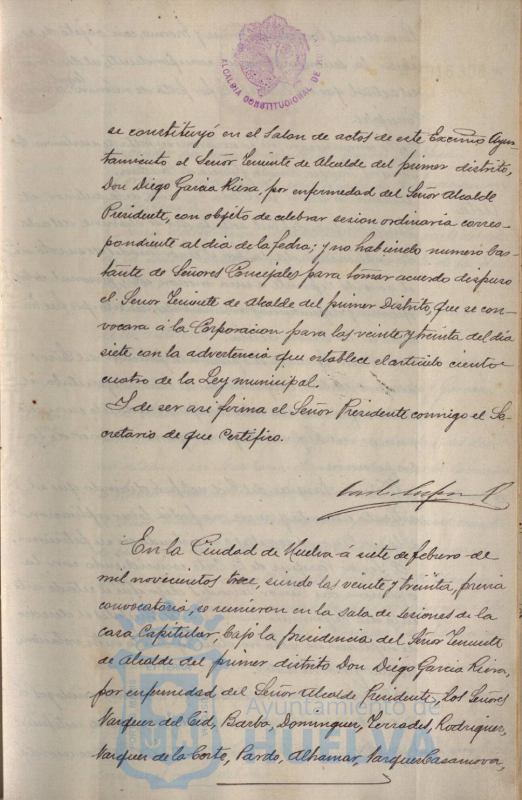 ALCALDIA CONSTITUCIONAL DE
se constituyó en el Salon de actos de este Excmo Ayun-
tamiento el Señor Teniente de Alcalde del primer distrito,
Don Diego Garcia Riera, por enfermedad del Señor Alcalde
Presidente, con objeto de celebrar sesion ordinaria corres-
pondiente al dia de la fecha; y no habiendo numero bas-
tante de Señores Concejales para tomar acuerdo dispuso
el Señor Teniente de Alcalde del primer Distrito, que se con-
vocara á la Corporacion para las veinte y treinta del dia
siete con la advertencia que establece el articulo ciento
cuatro de la Ley municipal.
Y de ser asi firma el Señor Presidente conmigo el Se-
cretario de que certifico.
En la Ciudad de Huelva á siete de febrero de
mil novecientos trece, siendo las veinte y treinta, previa
convocatoria, se reunieron en la sala de sesiones de la
casa Capitular, bajo la presidencia del Señor Teniente
de Alcalde del primer distrito Don Diego Garcia Riera,
por enfermedad del Señor Alcalde Presidente, los Señores
Vazquez del Cid, Barba, Dominguez, Terrades, Rodriguez,
Vazquez de la Corte, Pardo, Alhamar, Vazquez Casanova,
Ayuntamiento de
HUELVA